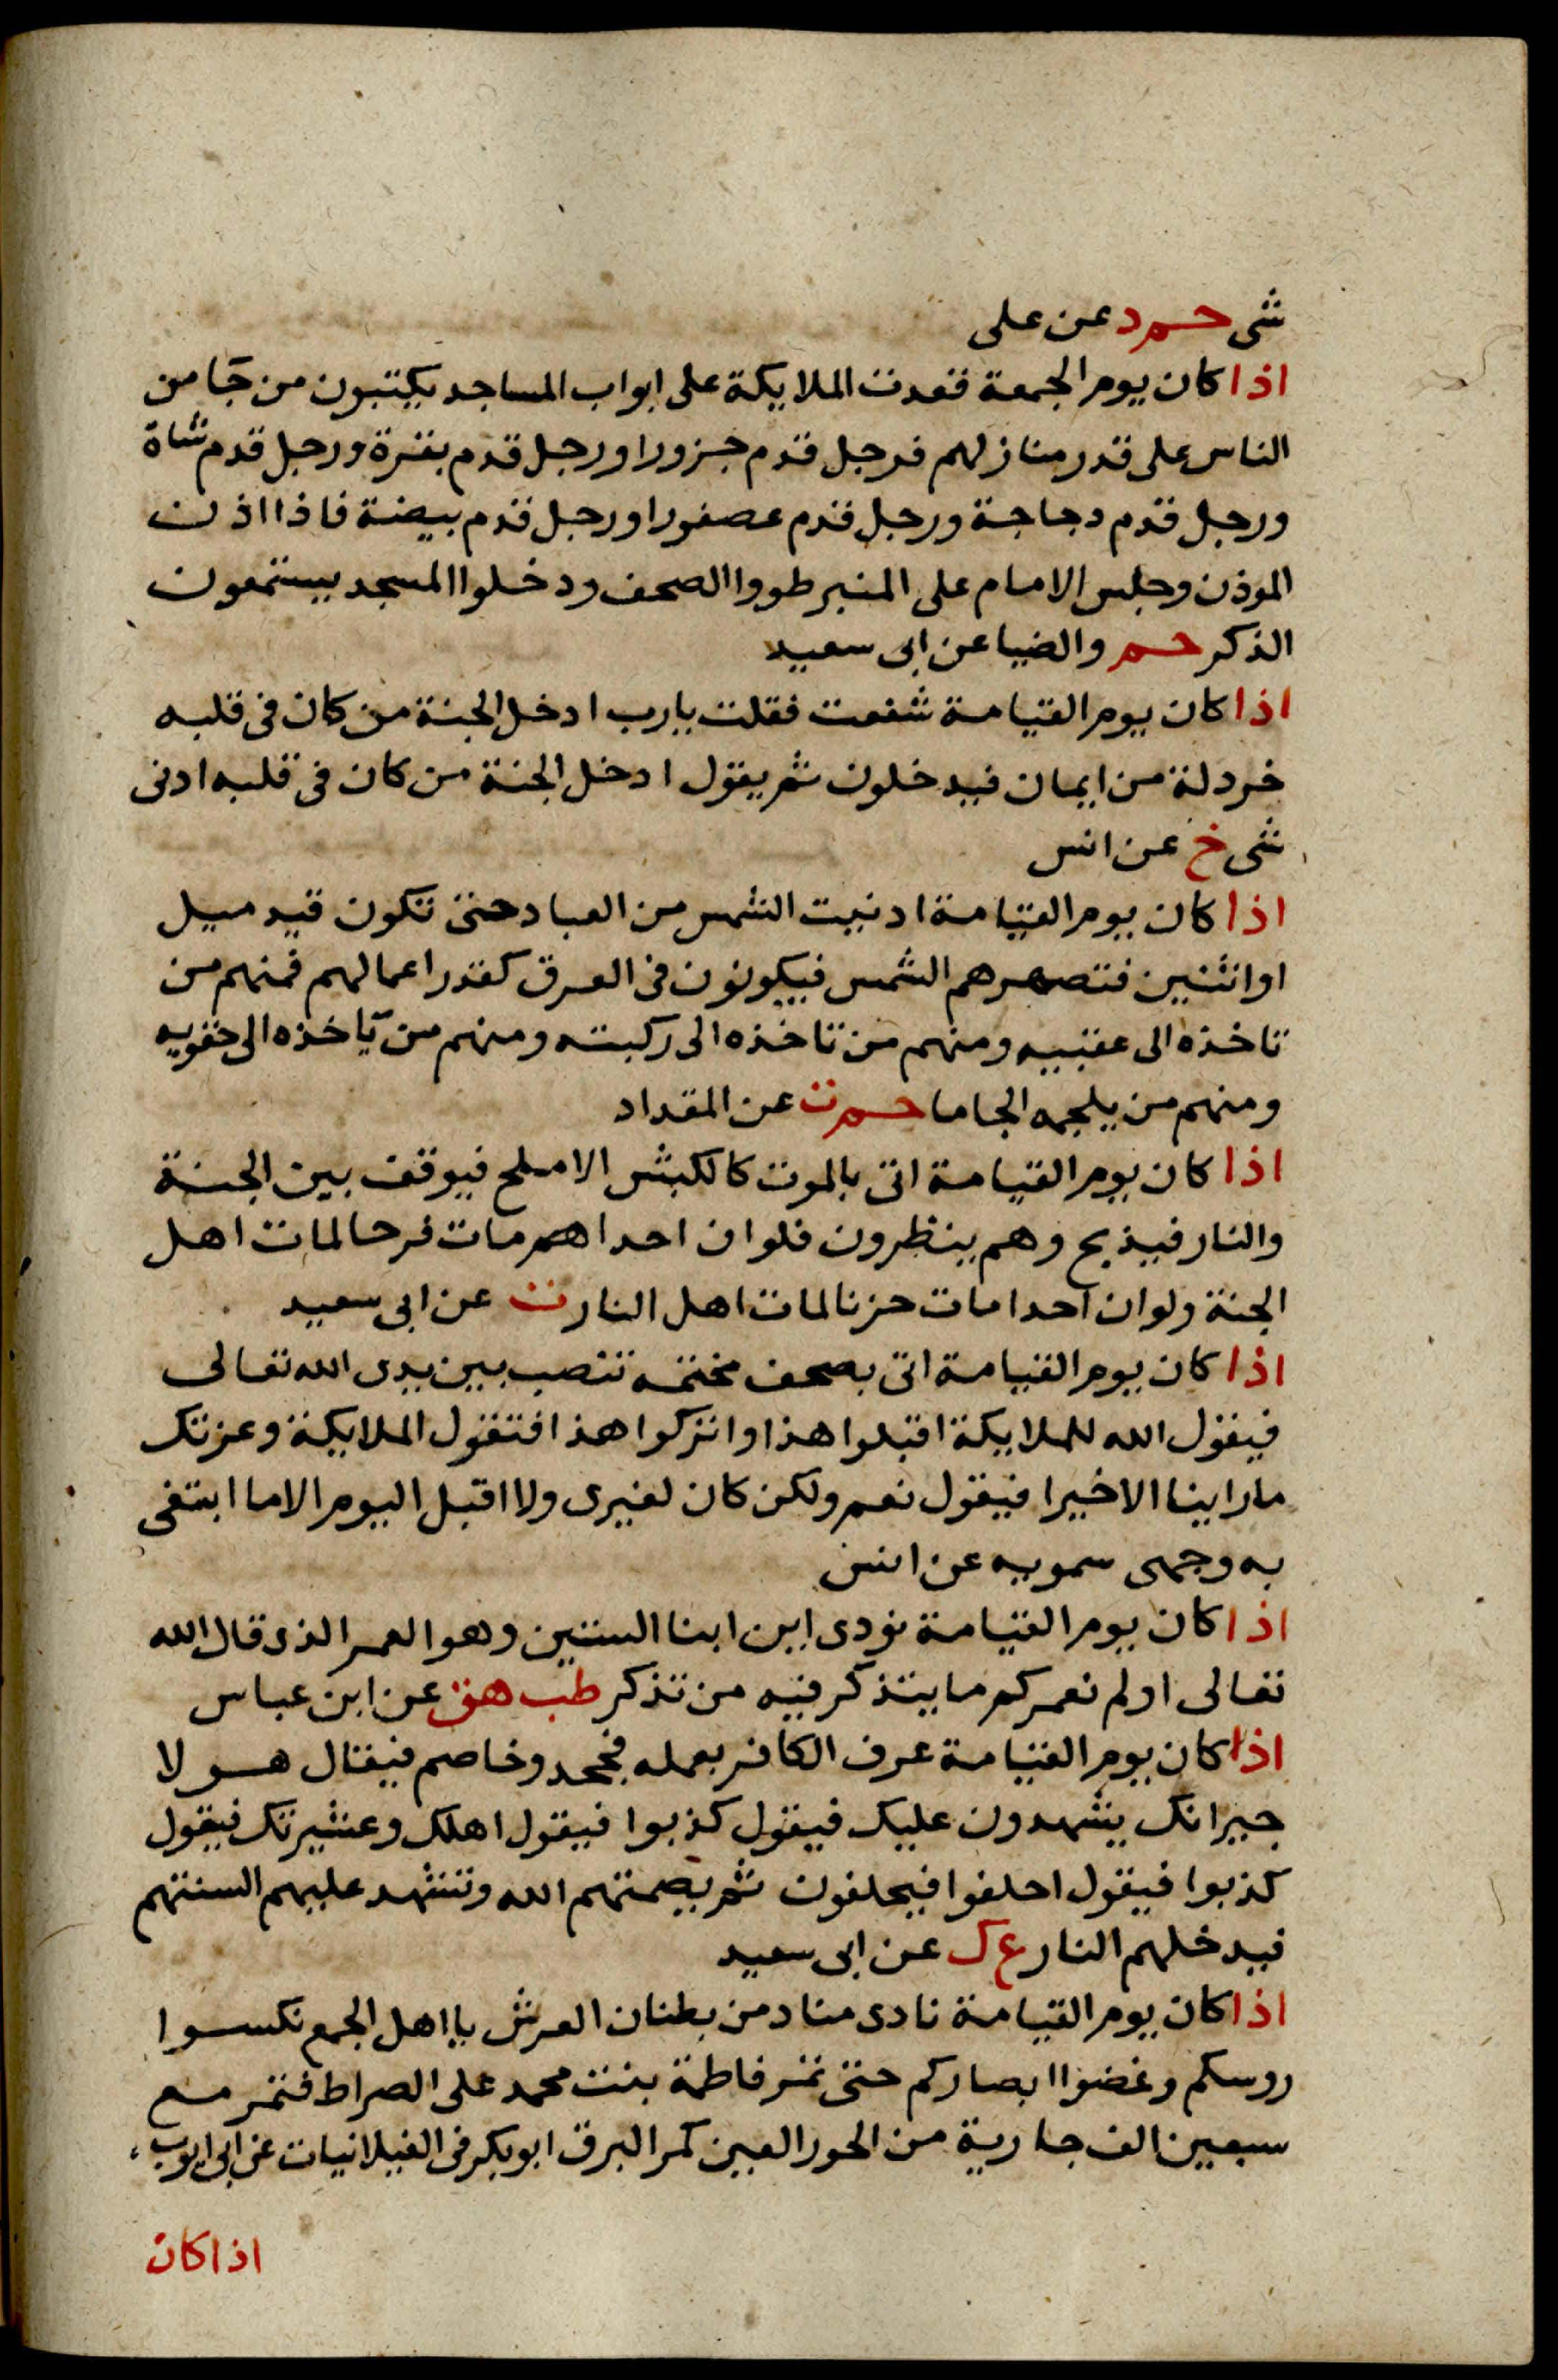 شى حم د عن على
اذا كان يوم الجمعة قعدت الملايكة على ابواب المساجد يكتبون من جآ من
الناس على قدر منازلهم فرجل قدم جزورا ورجل قدم بقرة ورجل قدم شاة
ورجل قدم دجاجة ورجل قدم عصفورا ورجل قدم بيضة فاذا اذن
الموذن وجلس الامام على المنبر طووا الصحف ودخلوا المسجد يستمعون
الذكر حم والضيا عن ابى سعيد
اذا كان يوم القيامة شفعت فقلت يارب ادخل الجنة من كان فى قلبه
خردلة من ايمان فيدخلون ثم يقول ادخل الجنة من كان فى قلبه ادنى
شى خ عن انس
اذا كان يوم القيامة ادنيت الشمس من العباد حتى تكون قيد ميل
او اثنين فتصهرهم الشمس فيكونون فى العرق كقدر اعمالهم فمنهم من
تاخذه الى عقبيه ومنهم من تاخذه الى ركبته ومنهم من ياخذه الى حقويه
ومنهم من يلجمه الجاما حم ت عن المقداد
اذا كان يوم القيامة اتى بالموت كالكبش الاملح فيوقف بين الجنة
والنار فيذبح وهم ينظرون فلوان احداهم مات فرحا لمات اهل
الجنة ولوان احدا مات حزنا لمات اهل النار ت عن ابى سعيد
اذا كان يوم القيامة اتى بصحف مختمه تنصب بين يدى الله تعالى
فيقول الله للملايكة اقبلوا هذا واتركوا هذا فتقول الملايكة وعزتك
ماراينا الاخيرا فيقول نعم ولكن كان لغيرى ولا اقبل اليوم الاما ابتغى
به وجهى سمويه عن انس
اذا كان يوم القيامة نودى اين ابنا الستين وهو العمر الذى قال الله
تعالى اولم نعمركم ما يتذكر فيه من تذكر طب هق عن ابن عباس
اذا كان يوم القيامة عرف الكافر بعمله فجحد وخاصم فيقال هولا
جيرانك يشهدون عليك فيقول كذبوا فيقول اهلك وعشيرتك فيقول
كذبوا فيقول احلفوا فيحلفون ثم يصمتهم الله وتشهد عليهم السنتهم
فيدخلهم النار ع ك عن ابى سعيد
اذا كان يوم القيامة نادى مناد من بطنان العرش يا اهل الجمع نكسوا
روسكم وغضوا ابصاركم حتى تمر فاطمة بنت محمد على الصراط فتمر مع
سبعين الف جارية من الحور العين كمر البرق ابو بكر فى الغيلانيات عن ابى ايوب
اذا كان